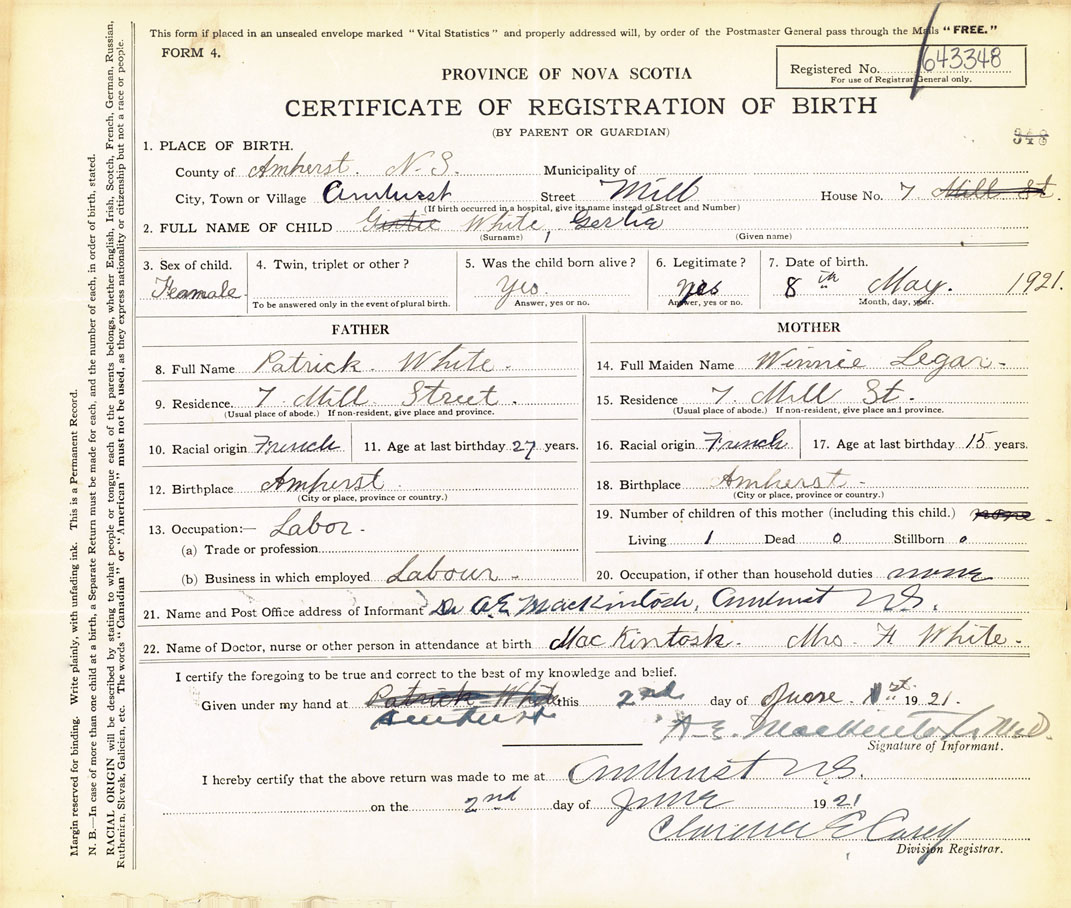 This form if placed in an unsealed envelope marked "Vital Statistics" and properly addressed will, by order of the Postmaster General pass through the Mails "FREE."
FORM 4.
Registered No. 643348
For use of Registrar General only.
PROVINCE OF NOVA SCOTIA
CERTIFICATE OF REGISTRATION OF BIRTH
(BY PARENT OR GUARDIAN)
348
1. PLACE OF BIRTH.
County of Amherst. N.S. Municipality of
City, Town or Village Amherst Street Mill House No. 7 Mill St.
(If birth occurred in a hospital, give its name instead of Street and Number)
2. FULL NAME OF CHILD White, Gertie
(Surname) (Given name)
3. Sex of child. 4. Twin, triplet or other? 5. Was the child born alive? 6. Legitimate? 7. Date of birth.
Feamale. Yes. yes 8th May. 1921.
To be answered only in the event of plural birth. Answer, yes or no. Answer, yes or no. Month, day, year.
FATHER
8. Full Name Patrick White.
9. Residence. 7 Mill Street.
(Usual place of abode.) If non-resident, give place and province.
10. Racial origin French 11. Age at last birthday 27 years.
12. Birthplace Amherst.
(City or place, province or country.)
13. Occupation:— Labor.
(a) Trade or profession
(b) Business in which employed Labour.
MOTHER
14. Full Maiden Name Winnie Legar.
15. Residence 7 Mill St.
(Usual place of abode.) If non-resident, give place and province.
16. Racial origin French 17. Age at last birthday 15 years.
18. Birthplace Amherst.
(City or place, province or country.)
19. Number of children of this mother (including this child.) none.
Living 1 Dead 0 Stillborn 0
20. Occupation, if other than household duties none
21. Name and Post Office address of Informant Dr A.E. MacKintosh, Amherst N.S.
22. Name of Doctor, nurse or other person in attendance at birth MacKintosh. Mrs. H White.
I certify the foregoing to be true and correct to the best of my knowledge and belief.
Given under my hand at Patrick White this 2nd day of June. 1st. 1921.
Amherst
A-E. MacKintosh M.D.
Signature of Informant.
I hereby certify that the above return was made to me at Amherst N.S.
on the 2nd day of June 1921
Clarence E Casey
Division Registrar.
Margin reserved for binding. Write plainly, with unfading ink. This is a Permanent Record.
N. B.—In case of more than one child at a birth, a Separate Return must be made for each, and the number of each, in order of birth, stated.
RACIAL ORIGIN will be described by stating to what people or tongue each of the parents belongs, whether English, Irish, Scotch, French, German, Russian,
Ruthenian, Slovak, Galician, etc. The words "Canadian" or "American" must not be used, as they express nationality or citizenship but not a race or people.